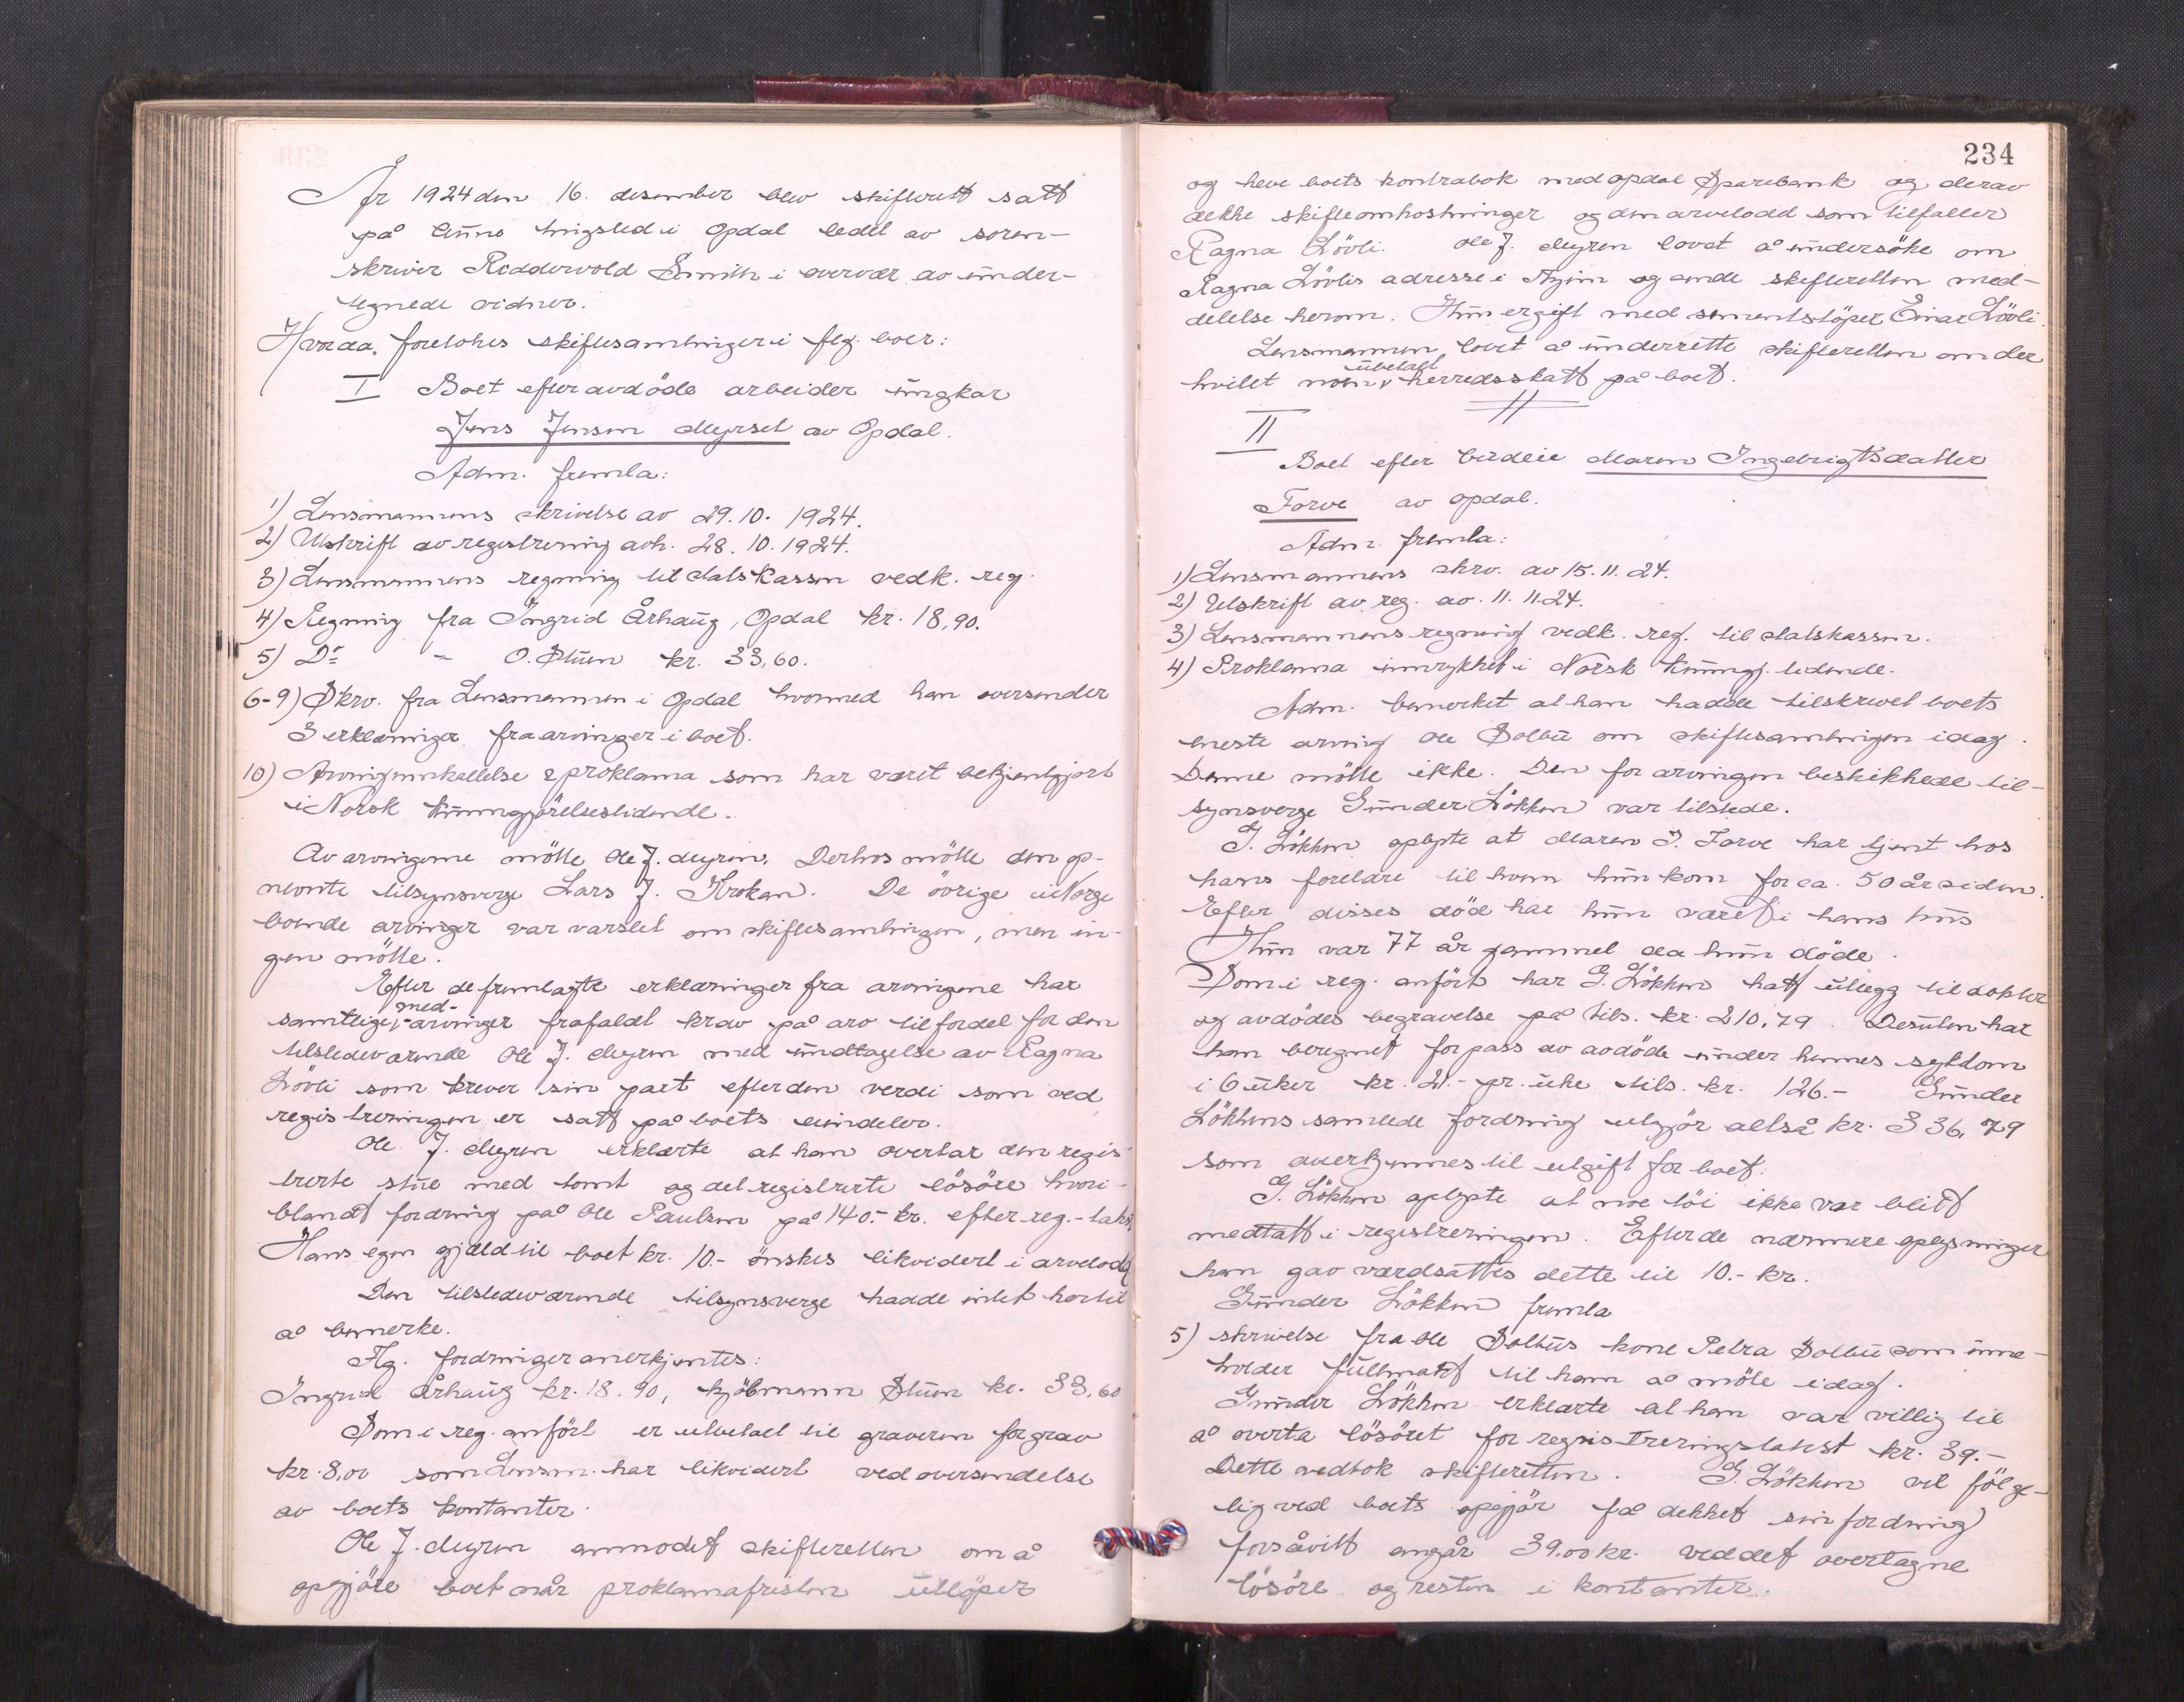 År 1924 den 16. desember blev skifterett satt
på Aune tingsted i Opdal ledet av soren-
skriver Roddervold Smith i overvær av under-
tegnede vidner.
Hvorda foretokes skiftesamlinger i flg. boer:
I Boet efter avdöde arbeider ungkar
Jens Jensen Myrset av Opdal.
Adm. fremla:
1) Lensmannens skrivelse av 29.10. 1924.
2) Utskrift av registrering avh. 28.10.1924.
3) Lensmannens regning til statskassen vedk. reg.
4) Regning fra Ingrid Århaug, Opdal kr. 18,90.
5) Do - O. Stuen kr. 33,60.
6-9) Skrv. fra Lensmannen i Opdal hvormed han oversender
3 erklæringer fra arvinger i boet.
10) Arvinginnkallelse & proklama som har været bekjentgjort
i Norsk kunngjörelsestidende.
Av arvingerne mötte Ole J. Myren. Derhos mötte den op-
nevnte tilsynsverge Lars J. Krokan. De övrige i Norge
boende arvinger var varslet om skiftesamlingen, men in-
gen mötte.
Efter de fremlagte erklæringer fra arvingene har
samtlige med-arvinger frafaldt krav på arv til fordel for den
tilstedeværende Ole J. Myren med undtagelse av Ragna
Lövli som krever sin part efter den verdi som ved
registreringen er satt på boets eiendeler.
Ole J. Myren erklærte at han overtar den regis-
trerte stue med tomt og det registrerte lösöre hvori-
blandt fordring på Ole Paulsen på 140.- kr. efter reg.-takst
Hans egen gjæld til boet kr. 10.- önskes likvidert i arvelodd
Den tilstedeværende tilsynsverge hadde intet hertil
å bemerke.
Flg. fordringer anerkjentes:
Ingrid Århaug kr. 18.90, kjöbmann Stuen kr. 33,60
Som i reg. anfört er utbetalt til graveren for grav
kr. 8,00 som Lensm. har likvidert ved oversendelse
av boets kontanter.
Ole J. Myren anmodet skifteretten om å
opgjöre boet når proklamafristen utlöper
234
og heve boets kontrabok med Opdal Sparebank og derav
dekke skifteomkostninger og den arvelodd som tilfaller
Ragna Lövli. Ole J. Myren lovet å undersöke om
Ragna Lövlis adresse i og sende skifteretten med-
delelse herom. Hun er gift med sementstöper Einar Lövli.
Lensmannen lovet å underrette skifteretten om der
hvilet noen ubetalt herredsskatt på boet.
II
Boet efter budeie Maren Ingebrigtsdatter
Torve av Opdal.
Adm. fremla:
1) Lensmannens skrv. av 15.11.24.
2) Utskrift av reg. av. 11.11.24.
3) Lensmannens regning vedk. reg. til statskassen.
4) Proklama innrykket i Norsk kunngj. tidende.
Adm. bemerket at han hadde tilskrevet boets
eneste arving Ole Solbu om skiftesamlingen idag.
Denne mötte ikke. Den for arvingen beskikkede til-
synsverge Gunder Lökken var tilstede.
G. Lökken oplyste at Maren I. Torve har tjent hos
hans foreldre til hvem hun kom for ca. 50 år siden.
Efter disses död har hun været i hans hus
Hun var 77 år gammel da hun döde.
Som i reg. anfört har G. Lökken hatt utlegg til doktor
og avdödes begravelse på tils. kr. 210,79. Desuten har
han beregnet for pass av avdöde under hennes sykdom
i 6 uker kr. 21.- pr. uke tils. kr. 126.- Gunder
Lökkens samlede fordring utgjör altså kr. 336,79
som anerkjennes til utgift for boet.
G. Lökken oplyste at noe töi ikke var blitt
medtatt i registreringen. Efter de nærmere oplysninger
han gav værdsattes dette til 10.- kr.
Gunder Lökken fremla
5) skrivelse fra Ole Solbus kone Petra Solbu som inne-
holder fullmakt til ham å möte idag.
Gunder Lökken erklærte at han var villig til
å overta lösöret for registreringstakst kr. 39.-
Dette vedtok skifteretten. G. Lökken vil fölge-
lig ved boets opgjör få dekket sin fordring
forsåvitt angår 39.00 kr. ved det overtagne
lösöre og resten i kontanter.